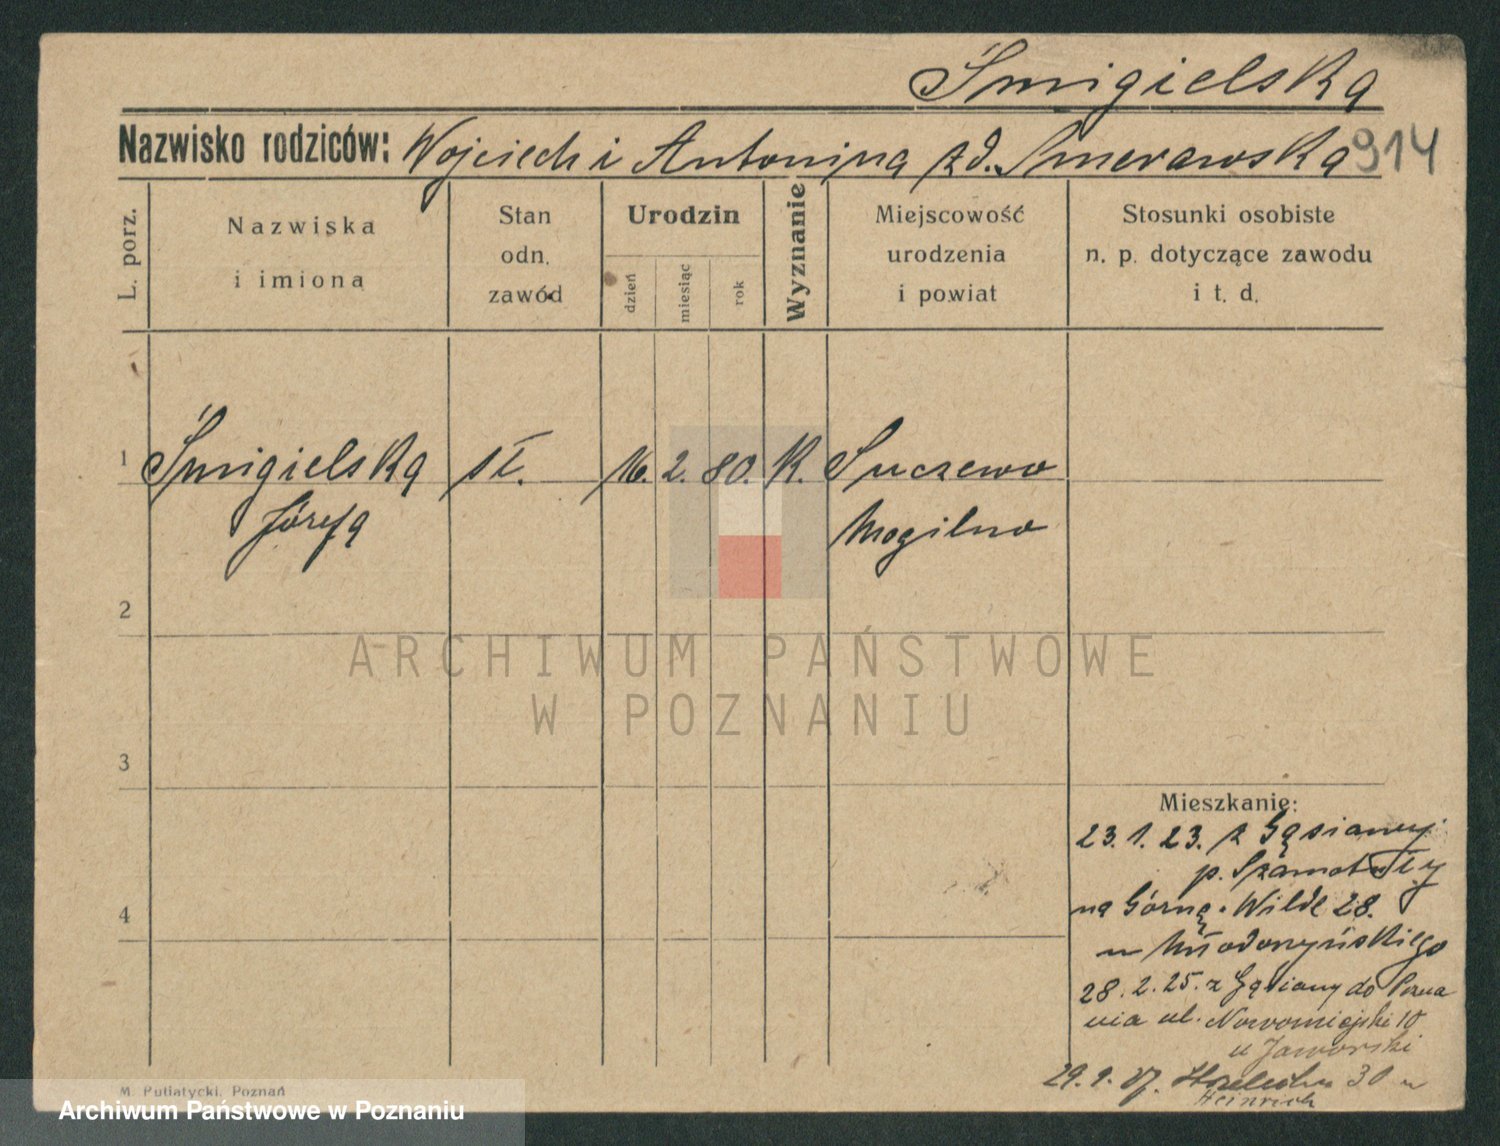 Śmigielska
Nazwisko rodziców: Wojciech i Antonina zd. Smerawska 914
L. porz.
Nazwiska
i imiona
Stan
odn.
zawód
Urodzin
dzień
miesiąc
rok
Wyznanie
Miejscowość
urodzenia
i powiat
Stosunki osobiste
n. p. dotyczące zawodu
i t. d.
1 Śmigielska st. 16. 2. 80. K. Suczewo
Józefa Mogilno
2
ARCHIWUM PAŃSTWOWE
W POZNANIU
3
Mieszkanie:
23. 1. 23. z Gąsiawy
p. Szamotuły
4
na Górną-Wilde 28.
u Młodozyńskiego
28. 2. 25. z Gąsiawy do Pozna
nia ul. Nowomiejski 10
u Jaworski
29. 9. 30 u
Heinrich
M. Putiatycki, Poznań
Archiwum Państwowe w Poznaniu